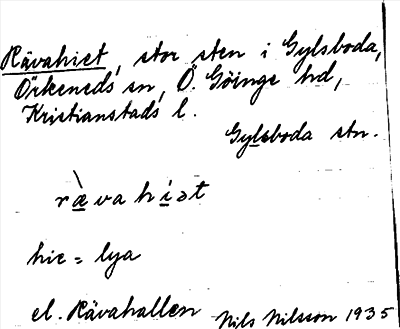 Rävahiet, stor sten i Gylsboda,
Örkeneds sn, Ö. Göinge hd,
Kristianstads l.
Gylsboda stn.
rævahiət
hie = lya
el. Rävahallen Nils Nilsson 1935